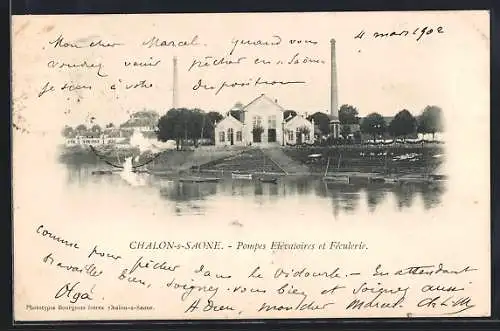 4 mars 1902
Mon cher Marcel, quand vous
voudrez venir pêcher en Saone
je suis à votre disposition
CHALON-s-SAONE. - Pompes Elévatoires et Féculerie.
comme pour pêcher dans le Vidourle. - En attendant
travaillez bien, soignez-vous bien et soignez aussi
Olga. Adieu, mon cher Marcel,
Phototypie Bourgeois frères Chalon-s-Saone.